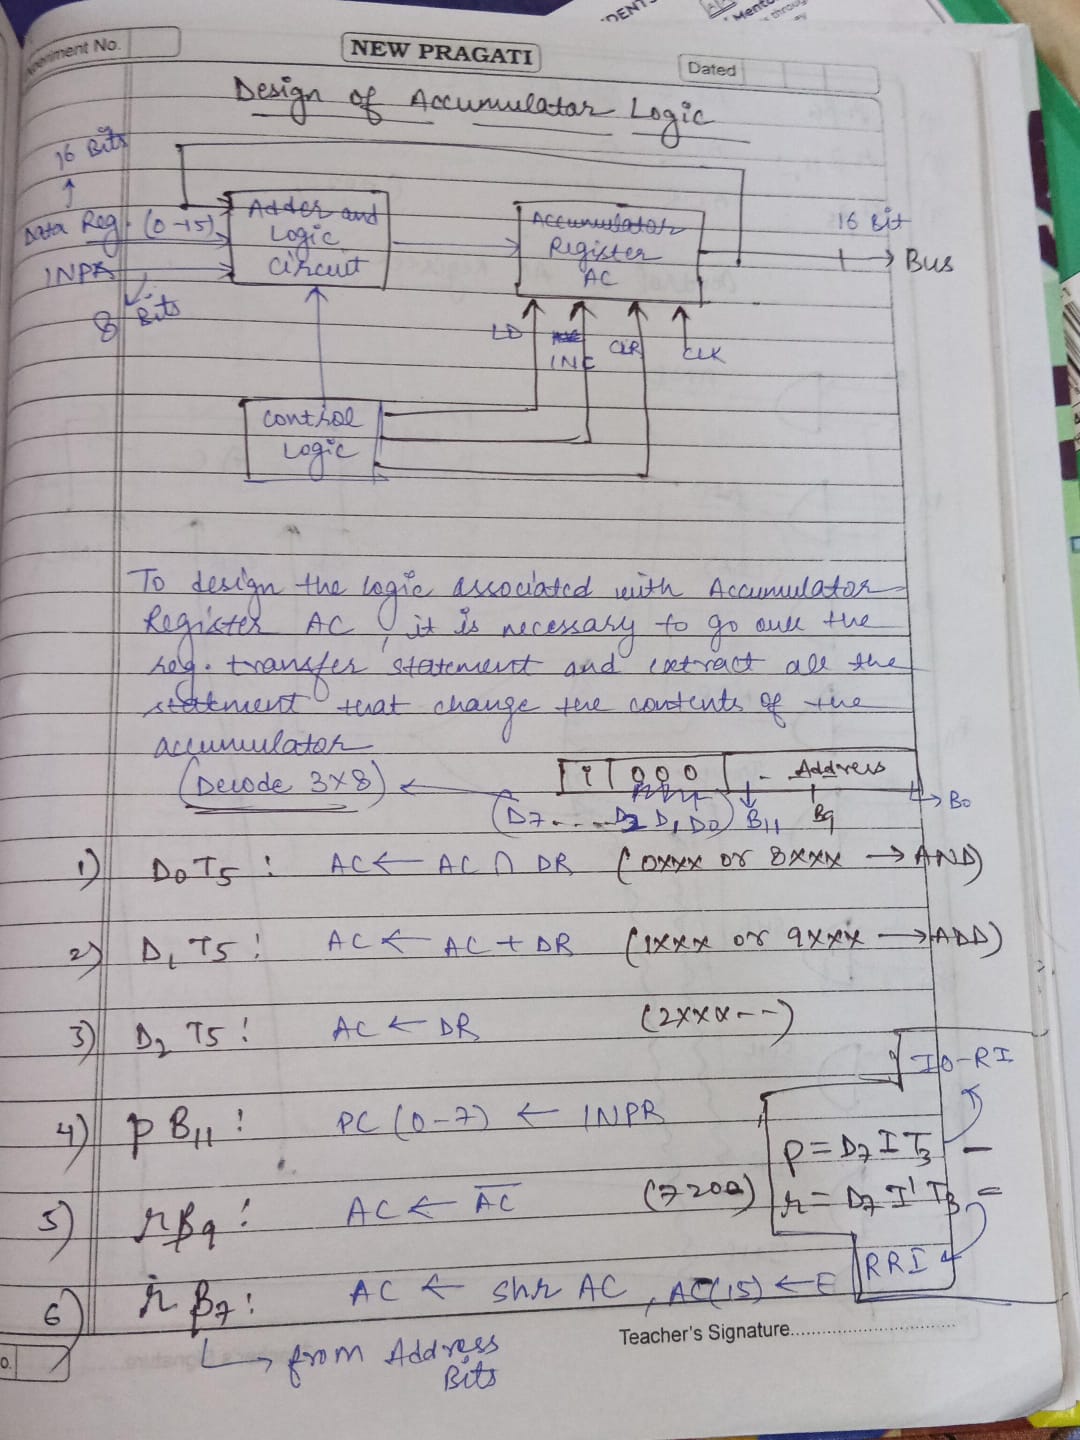 'DENT
Mento
throug
Experiment No.
NEW PRAGATI
Dated
Design of Accumulator Logic
16 Bits
Data Reg. (0-15)
INPR
8 Bits
Adder and
Logic
Circuit
Accumulator
Register
AC
16 Bit
Bus
LD
INC
CLR
CLK
Control
Logic
To design the logic associated with Accumulator
Register AC, it is necessary to go over the
reg. transfer statement and extract all the
statment that change the contents of the
accumulator
(Decode 3x8) ← I 000 - Address
(D7 ..... D2 D1 D0) B11 B9 → B0
1) D0T5 : AC ← AC ∩ DR (0xxx or 8xxx → AND)
2) D1 T5 : AC ← AC + DR (1xxx or 9xxx → ADD)
3) D2 T5 : AC ← DR (2xxx--)
IO-RI
4) p B11 : PC (0-7) ← INPR
p = D7 I T3 -
5) rB9 : AC ← \overline{AC} (7200)
r = D7 I' T3 =
RRI
6) r B7 : AC ← shr AC, AC(15) ← E
Teacher's Signature................................
↳ from Address
Bits
o.